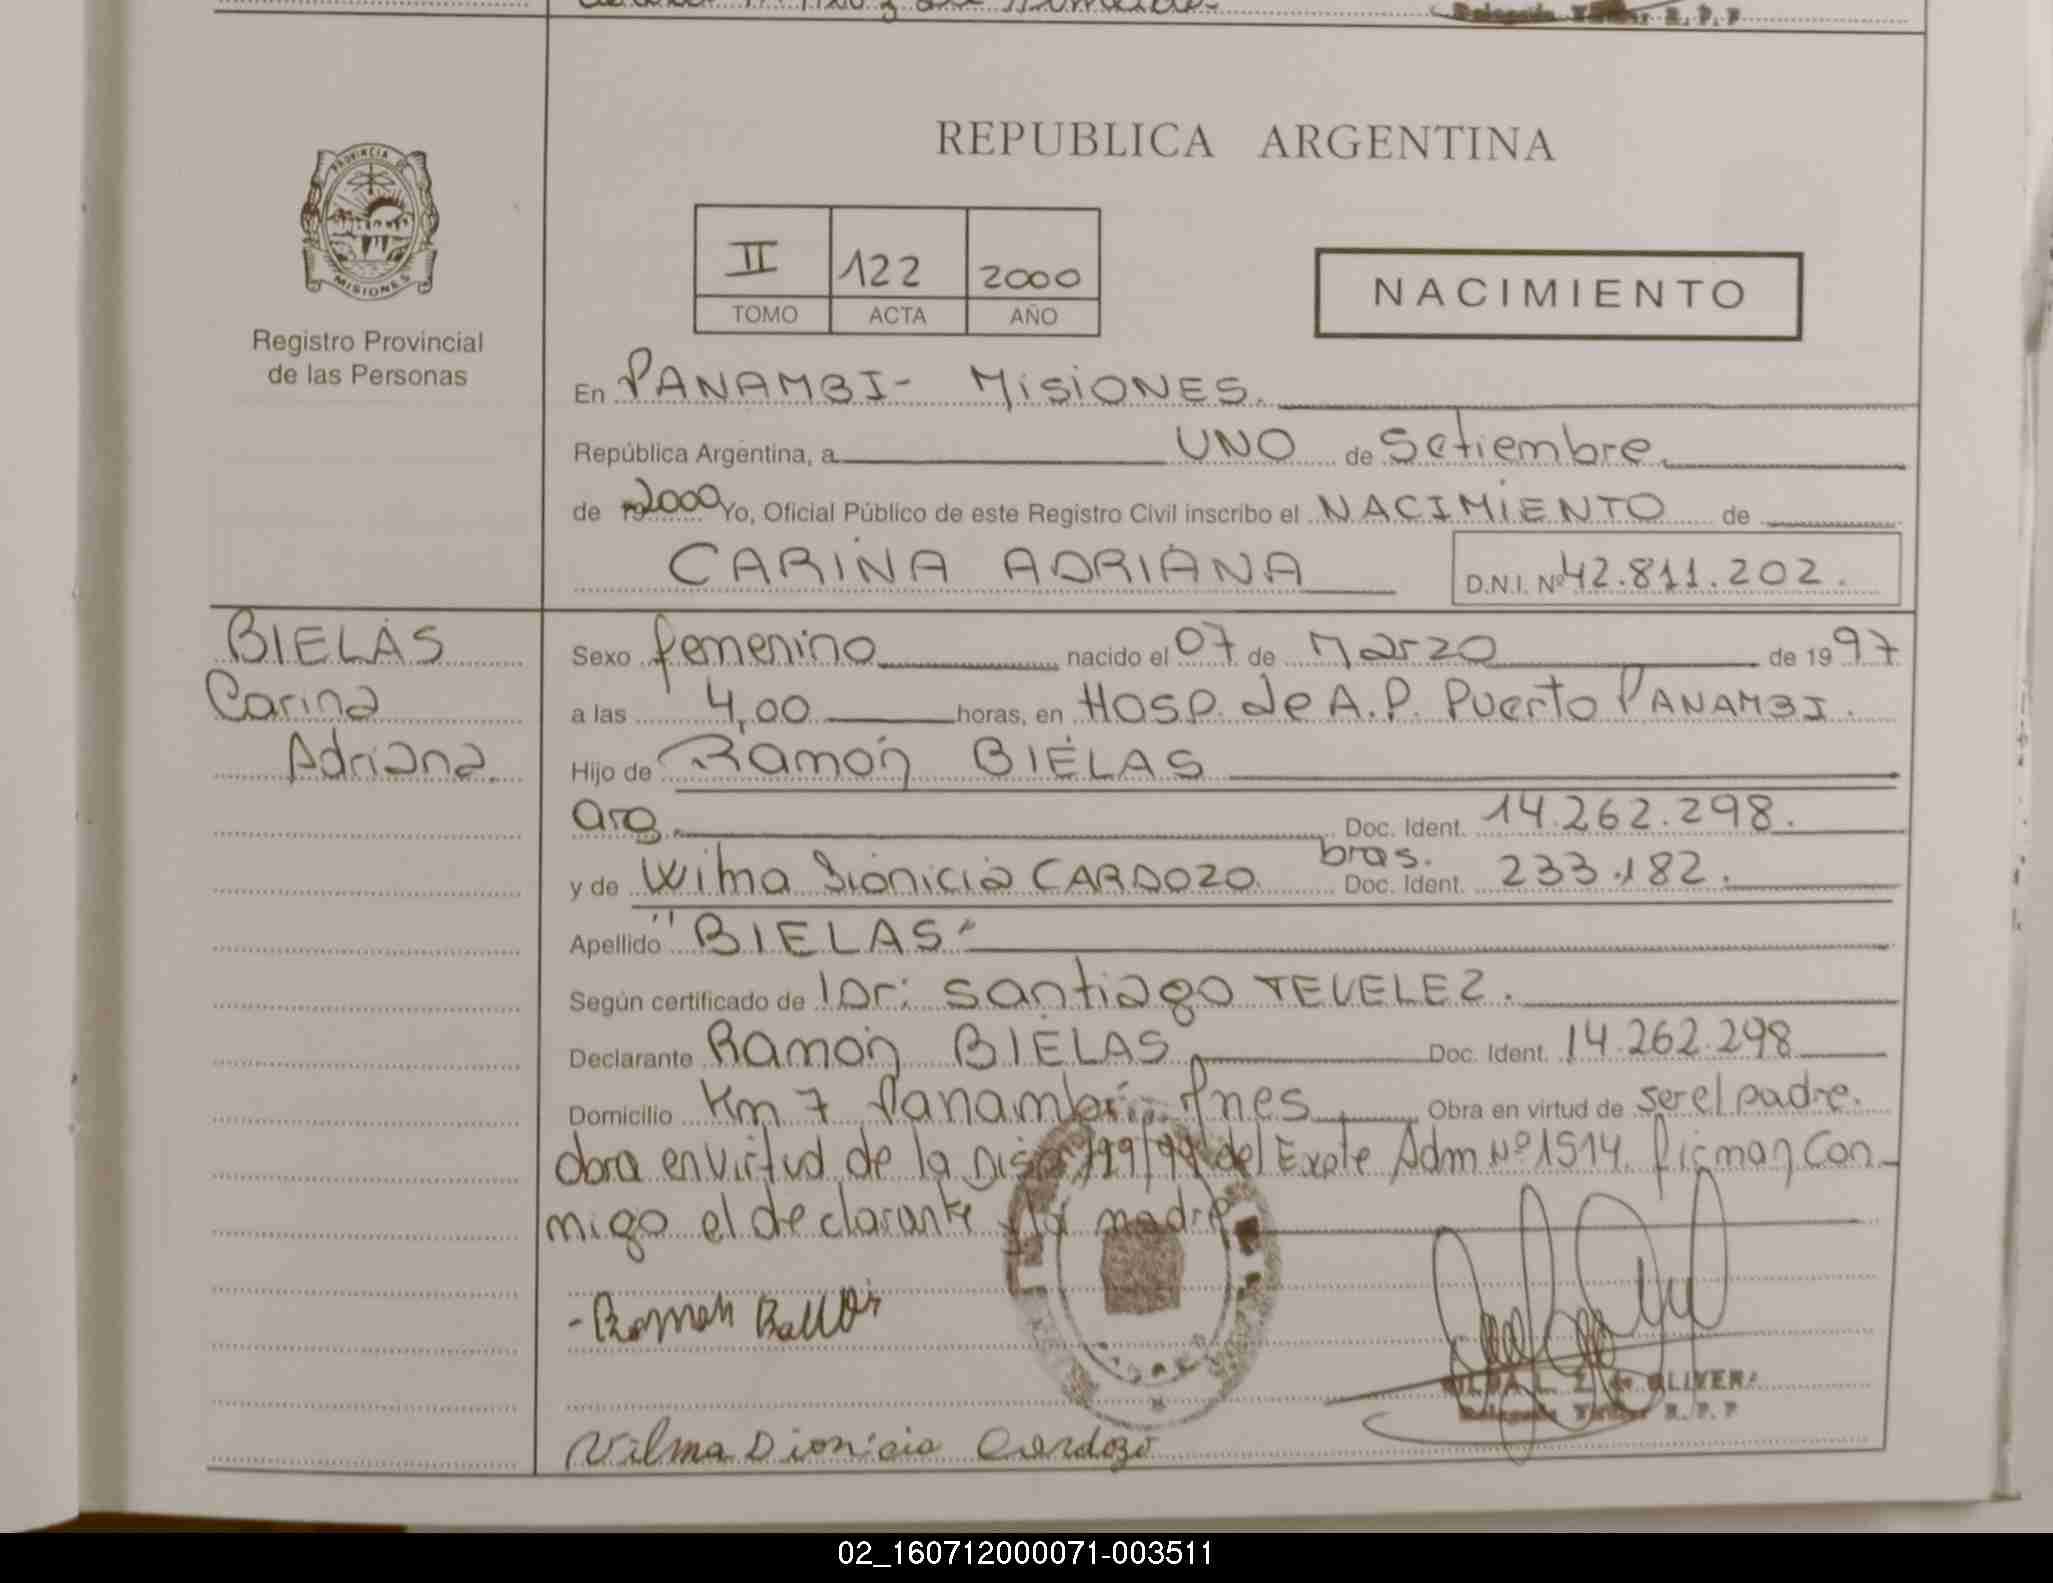 REPUBLICA ARGENTINA
PROVINCIA DE
MISIONES
Registro Provincial
de las Personas
II 122 2000
TOMO ACTA AÑO
NACIMIENTO
En PANAMBI- MISIONES.
República Argentina, a UNO de Setiembre
de 2000 Yo, Oficial Público de este Registro Civil inscribo el NACIMIENTO de
CARINA ADRIANA D.N.I. Nº 42.811.202.
BIELAS
Carina
Adriana.
Sexo femenino nacido el 07 de Marzo de 1997
a las 4,00 horas, en Hosp. de A.P. Puerto PANAMBI.
Hijo de Ramón BIELAS
arg. Doc. Ident. 14.262.298.
bras.
y de Wilma Dionicia CARDOZO Doc. Ident. 233.182.
Apellido "BIELAS"
Según certificado de Dr: Santiago TEVELEZ.
Declarante Ramón BIELAS Doc. Ident. 14.262.298
Domicilio Km 7 Panambí Obra en virtud de ser el padre.
obra en virtud de la del Expte Adm Nº 1514. firman con-
migo el declarante y la madre
Vilma Dionicia Cardozo
R. P. P
02_160712000071-003511